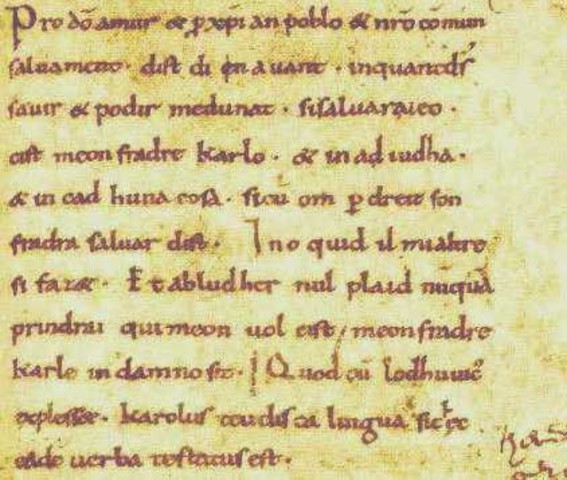 Pro dō amur & ꝓ xp̄ian poblo & nr̄o cōmun
saluament. dist di en auant. inquantdſ
sauir & podir medunat. sisaluaraieo.
cist meon fradre Karlo. & in ad iudha.
& in cad huna cosa. sicū om ꝑ dreit son
fradra saluar dist. Ino quid il mi altre
si faz&. Et abludher nul plaid nūquā
prindrai qui meon uol cist meon fradre
Karle in damno sit. Quod cū lodhuuic᷒
explesset. Karolus teudisca lingua sic ec
eadē uerba testatus est.